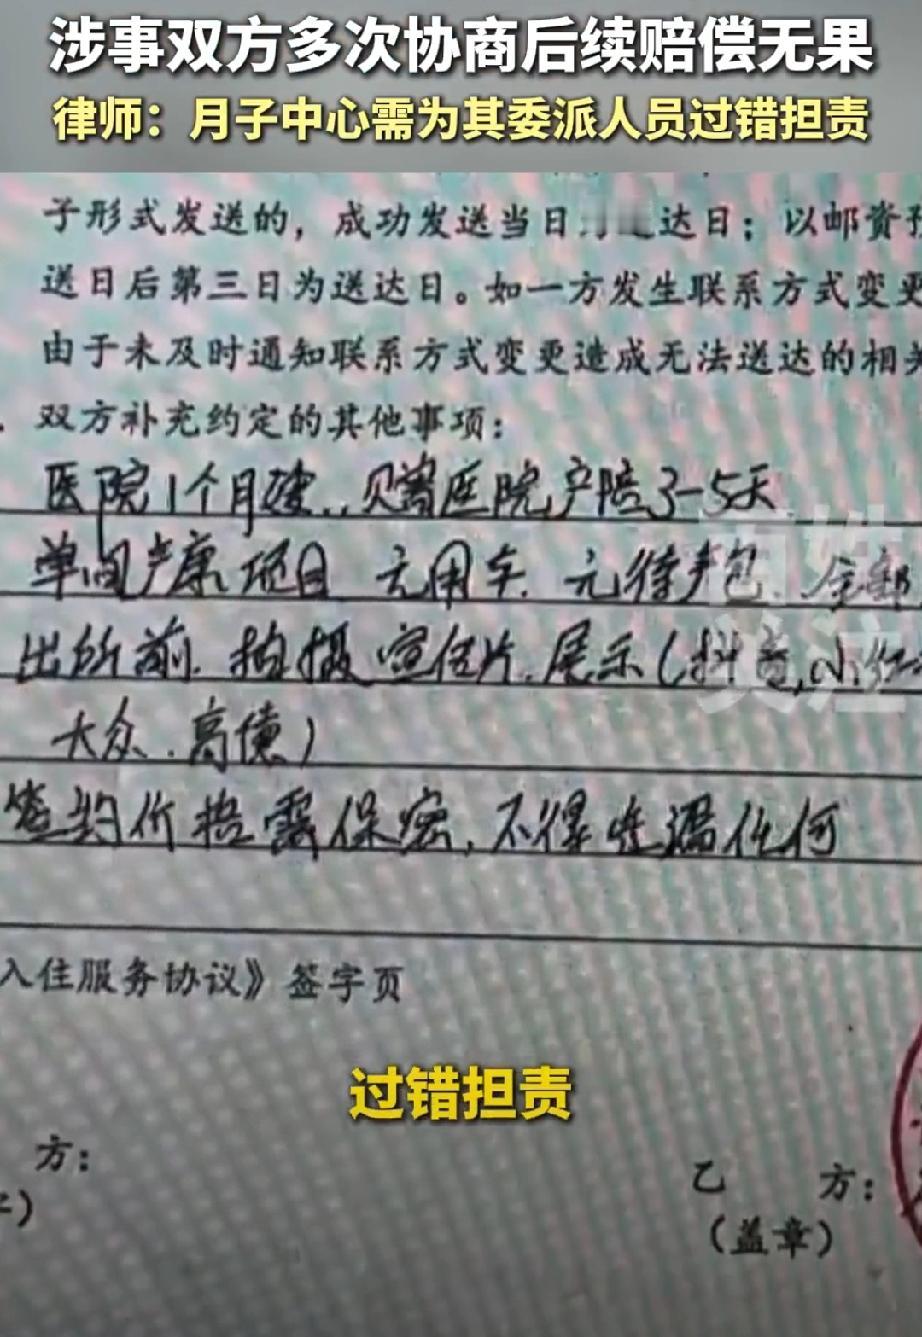 涉事双方多次协商后续赔偿无果
律师：月子中心需为其委派人员过错担责
子形式发送的，成功发送当日 达日；以邮资
送日后第三日为送达日。如一方发生联系方式变更
由于未及时通知联系方式变更造成无法送达的相关
双方补充约定的其他事项：
医院1个月 贈医院产陪3-5天
单间产康项目 无用车 元待产包 全部
出所前 拍摄宣传片 展示（抖音，小红
大众 高德）
签约价格需保密，不得泄漏任何
百姓
关注
入住服务协议》签字页
过错担责
方：
乙 方：
（盖章）